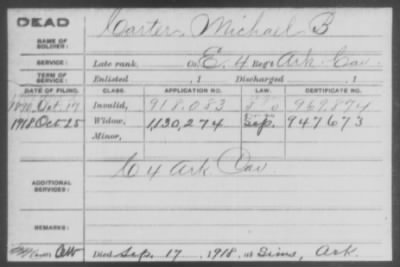 DEAD
NAME OF SOLDIER: Carter, Michael B
SERVICE: Late rank, Co. E, 4 Reg't Ark Cav.
TERM OF SERVICE: Enlisted , 1 Discharged , 1
DATE OF FILING. CLASS. APPLICATION NO. LAW. CERTIFICATE NO.
1890 Oct. 17 Invalid, 918.083 969.874
1918 Oct 25 Widow, 1,130,274 Sep. 947673
Minor,
ADDITIONAL SERVICES: C 4 Ark Cav
REMARKS:
Died Sep. 17, 1918, at Sims, Ark.